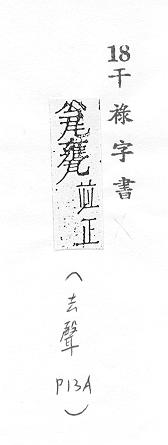 18干祿字書
瓮甕並正
(去聲P13A)